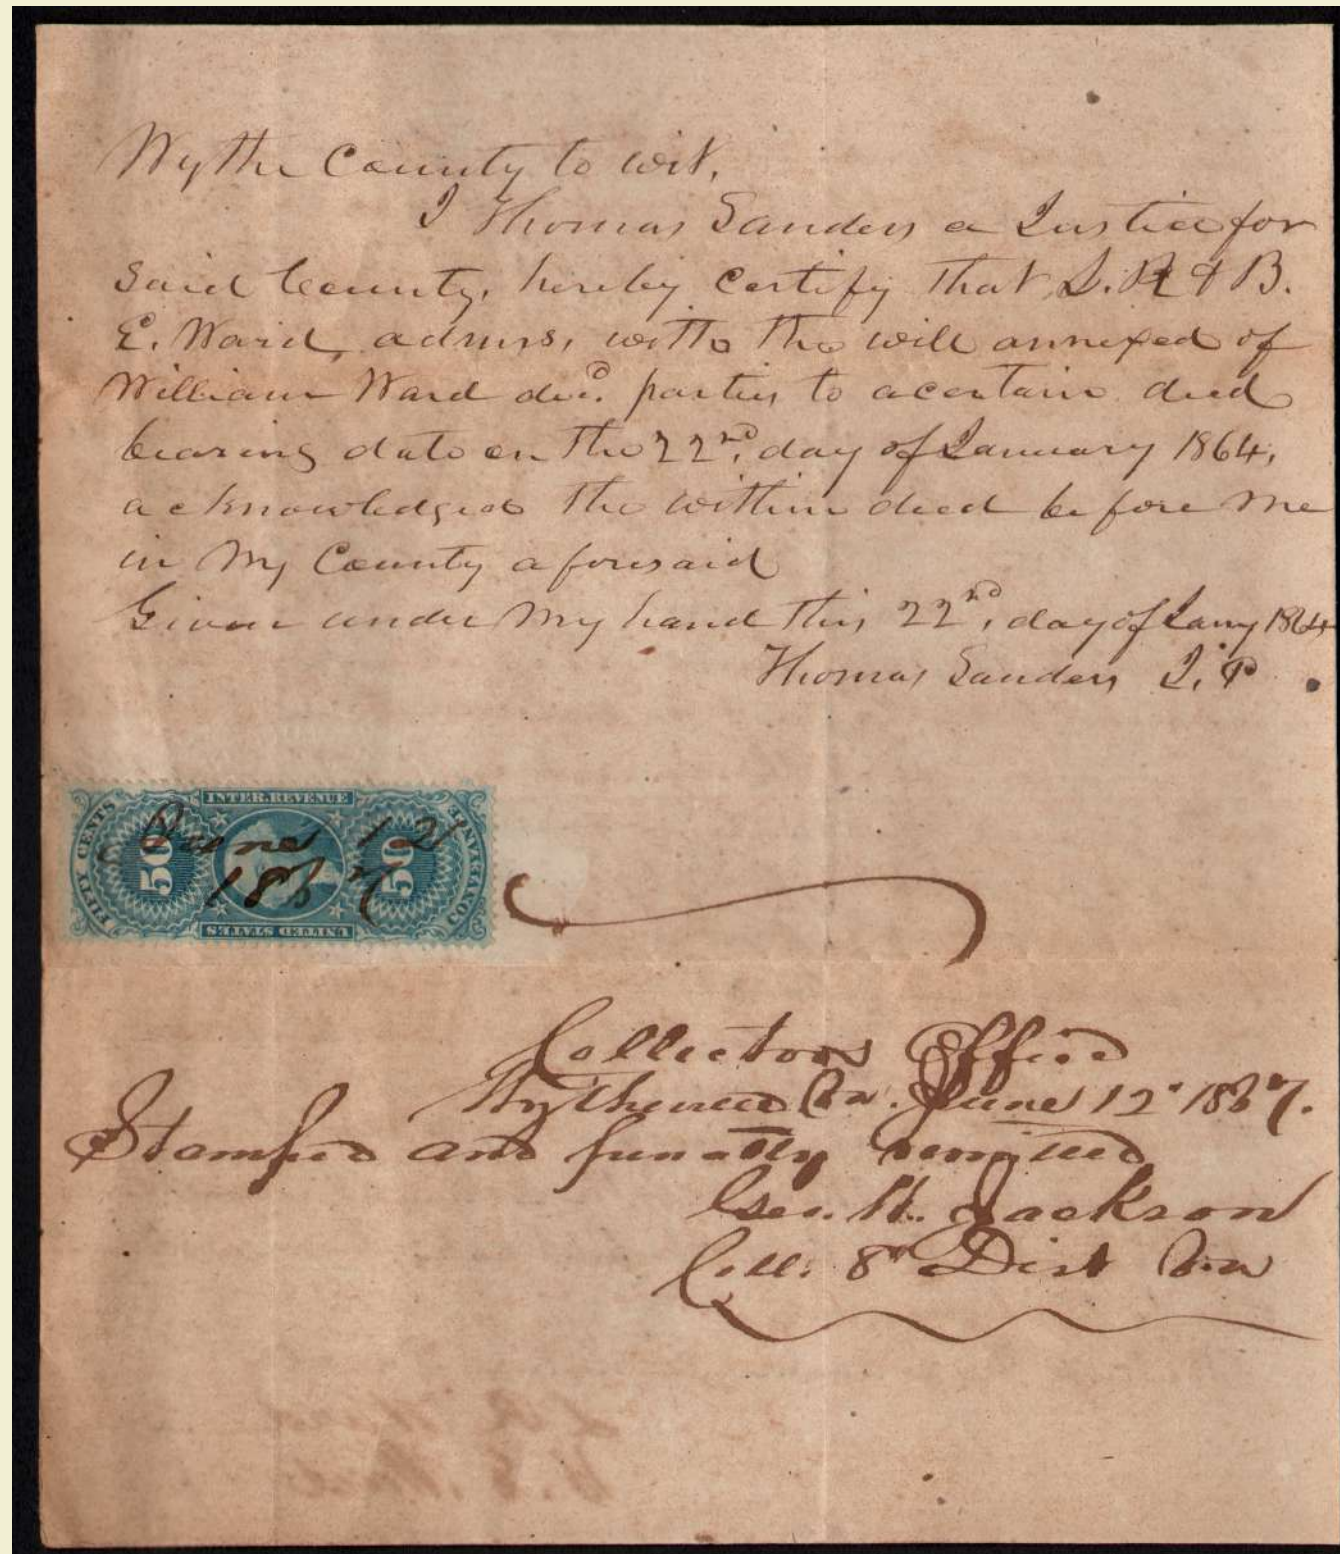 Wythe County to wit,
I Thomas Sanders a Justice for
said County, hereby certify that J. R & B.
E. Ward, admrs, with the will annexed of
William Ward decd. parties to a certain deed
bearing date on the 22nd, day of January 1864,
acknowledged the within deed before me
in my County aforesaid
Given under my hand this 22nd, day of Jany 1864
Thomas Sanders J. P
FIFTY CENTS
50
INTER. REVENUE
UNITED STATES
50
CONVEYANCE
June 12
1867
Collectors Office
Wytheville Va. June 12" 1867.
Stamped and penalty remitted
Geo. H. Jackson
Coll. 8" Dist Va